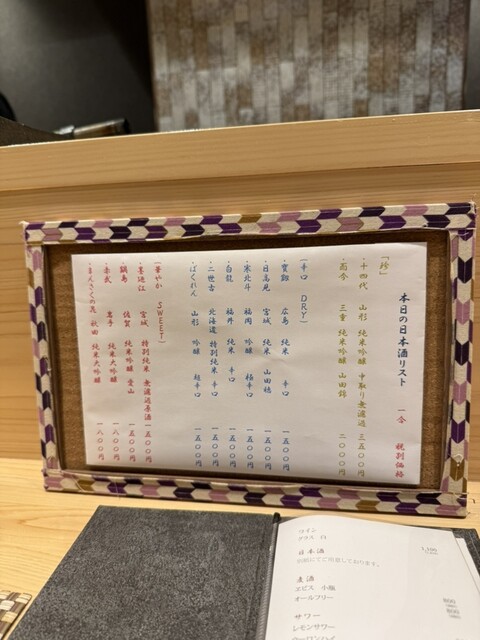 本日の日本酒リスト 一合 税別価格
「珍」
・十四代 山形 純米吟醸 中取り無濾過 三五〇〇円
・而今 三重 純米吟醸 山田錦 二〇〇〇円
(辛口 DRY)
・賀茂 広島 純米 辛口 一五〇〇円
・日高見 宮城 純米 山田穂 一五〇〇円
・寒北斗 福岡 吟醸 極辛口 一五〇〇円
・白龍 福井 純米 辛口 一五〇〇円
・二世古 北海道 特別純米 辛口 一五〇〇円
・ばくれん 山形 吟醸 超辛口 一五〇〇円
(華やか SWEET)
・墨廼江 宮城 特別純米 無濾過原酒 一五〇〇円
・鍋島 佐賀 純米吟醸 愛山 一五〇〇円
・赤武 岩手 純米大吟醸 一八〇〇円
・まんさくの花 秋田 純米大吟醸 一八〇〇円
ワイン
グラス 白 1,100
日本酒
別紙にてご用意しております。
麦酒
ヱビス 小瓶 800
オールフリー 850
サワー
レモンサワー
ウーロンハイ